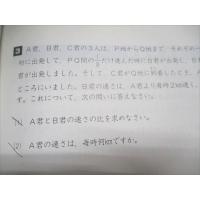 3 A君、B君、C君の3人は、P町からQ町まで、それぞれ一
時に出発して、PQ間の だけ進んだ時にB君が出発し、
君が出発しました。そして、C君がQ町に到着したとき、A
ところにいました。B君の速さは、A君より毎時2km速く、
す。これについて、次の問いに答えなさい。
(1) A君とB君の速さの比を求めなさい。
(2) A君の速さは、毎時何kmですか。